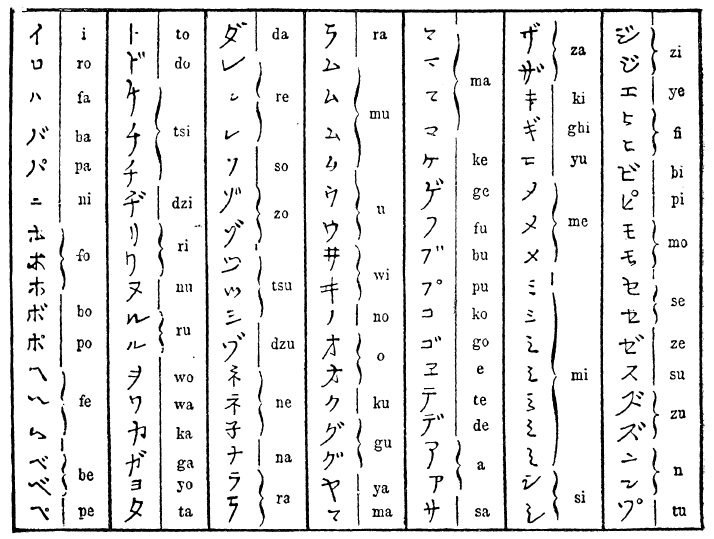 イ i
ロ ro
ハ fa
バ ba
パ pa
ニ ni
ホ
ホ fo
ホ
ボ bo
ポ po
ヘ
ヘ fe
ヘ
ベ
ベ be
ペ pe
ト to
ド do
チ
チ tsi
チ
ヂ dzi
リ
リ ri
ヌ nu
ル
ル ru
ヲ wo
ワ wa
カ ka
ガ ga
ヨ yo
タ ta
ダ da
レ
レ re
レ
ソ so
ゾ
ゾ zo
ツ
ツ tsu
ツ
ヅ dzu
ネ
ネ ne
子
ナ na
ラ
ラ ra
ラ ra
ム
ム
ム mu
ム
ウ
ウ u
井
キ wi
ノ no
オ
オ o
ク ku
グ
グ gu
ヤ ya
マ ma
マ
マ
マ ma
マ
ケ ke
ゲ ge
フ fu
ブ bu
プ pu
コ ko
ゴ go
ヱ e
テ te
デ de
ア
ア a
サ sa
ザ
ザ za
キ ki
ギ ghi
ユ yu
メ
メ me
メ
ミ
ミ
ミ
ミ mi
ミ
ミ
ミ
シ
シ si
ジ
ジ zi
エ ye
ヒ
ヒ fi
ビ bi
ピ pi
モ
モ mo
セ
セ se
ゼ ze
ス su
ズ
ズ zu
ン
ン n
ツ゚ tu